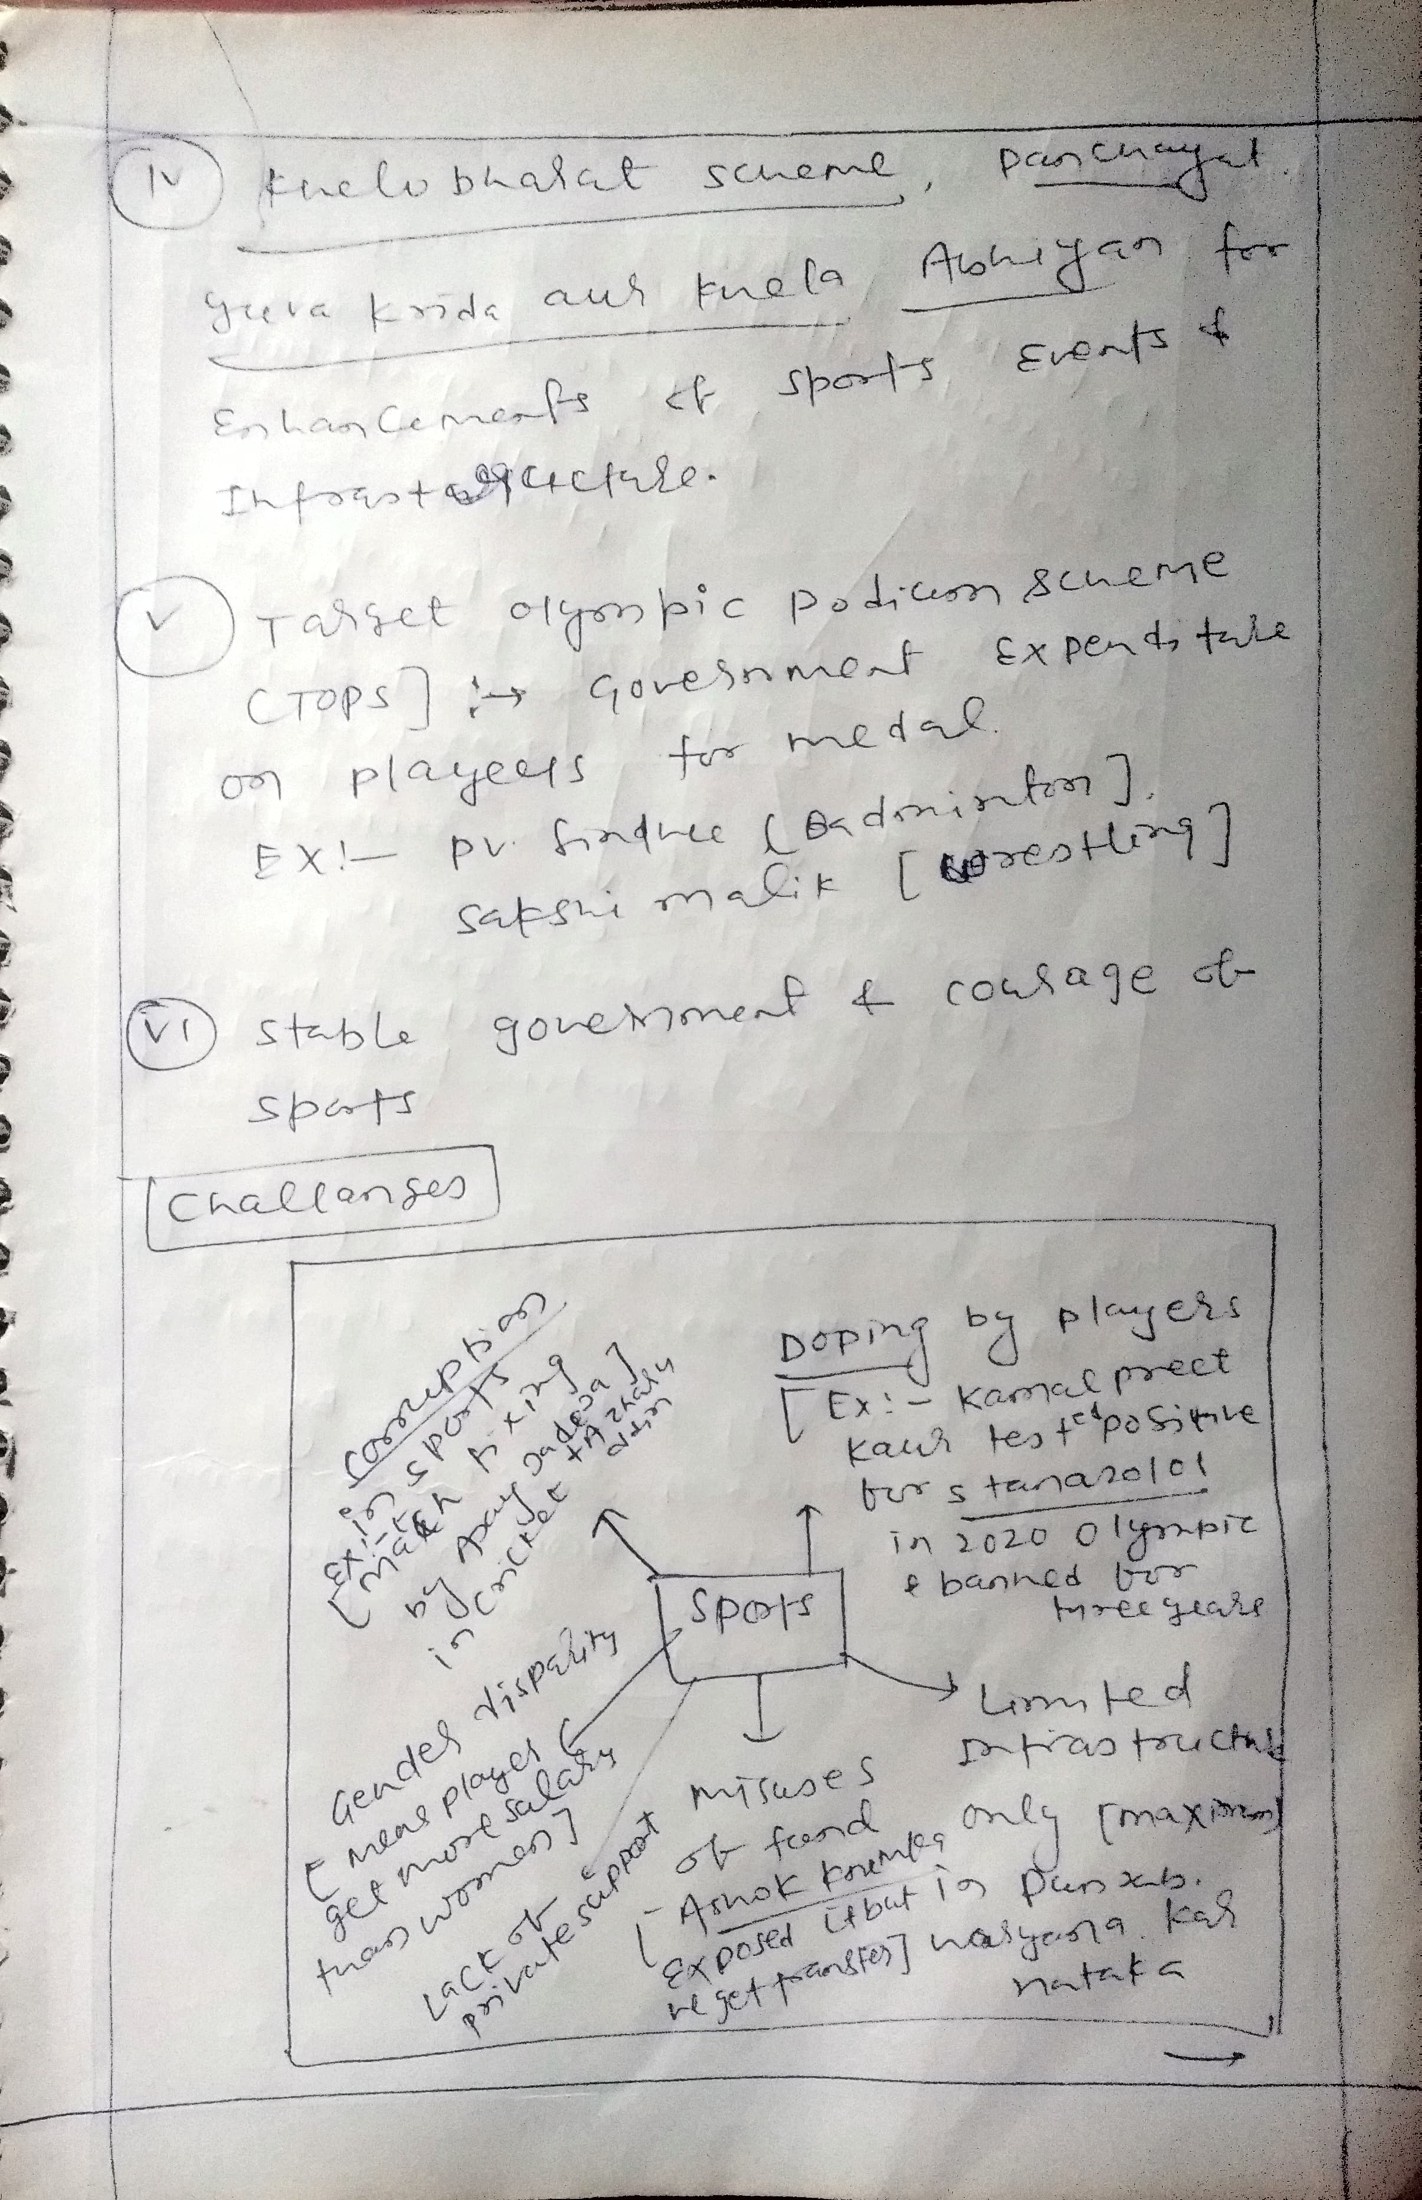 IV Khelo bharat scheme, Panchayat
yuva Krida aur Khela Abhiyan for
Enhancements of sports Events &
Infrastructure.
V Target olympic Podium scheme
[TOPS] :→ Government Expenditure
on players for medal.
EX:- P.V. Sindhu [Badminton].
Sakshi malik [wrestling]
VI Stable government & courage of
sports
Challanges
Corruption
in sports
[Ex:- Match fixing
by Ajay Jadeja]
in cricket
Doping by players
[Ex:- Kamalpreet
Kaur tested positive
for stanazolol
in 2020 Olympic
& banned for
three years
Sports
Gender disparity
[mens player
get more salary
than women]
Lack of
private support
misuses
of fund
[Ashok Khemka
exposed it but
he get transfer]
Limited
Infrastructure
only [maximum]
in Punjab.
Haryana. Kar
nataka